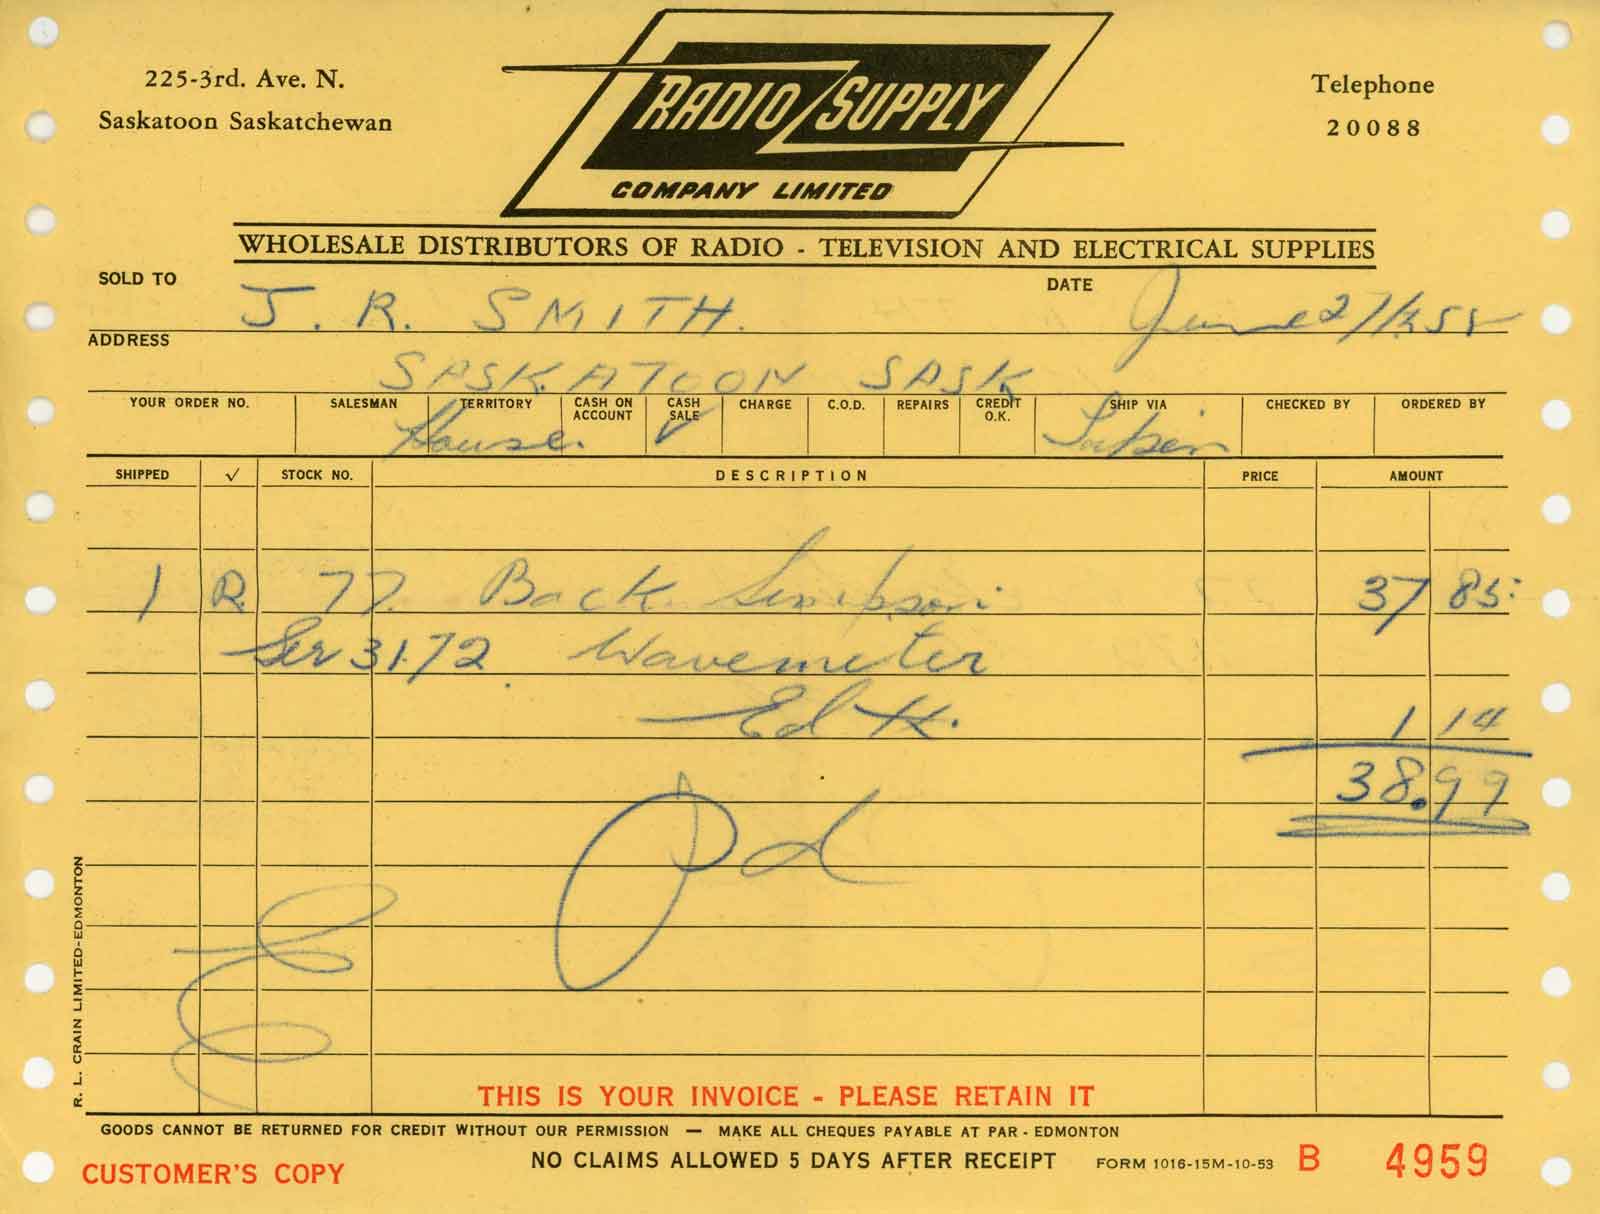 225-3rd. Ave. N.
Saskatoon Saskatchewan
RADIO SUPPLY
COMPANY LIMITED
Telephone
20088
WHOLESALE DISTRIBUTORS OF RADIO - TELEVISION AND ELECTRICAL SUPPLIES
SOLD TO J. R. SMITH. DATE June 27/1958
ADDRESS SASKATOON SASK
YOUR ORDER NO. SALESMAN TERRITORY CASH ON ACCOUNT CASH SALE CHARGE C.O.D. REPAIRS CREDIT O.K. SHIP VIA CHECKED BY ORDERED BY
House. ✓
SHIPPED ✓ STOCK NO. DESCRIPTION PRICE AMOUNT
1 R 77. Back Simpson 37 85
Ser 3172 Wavemeter
Ed H. 1 14
38.99
Pd
THIS IS YOUR INVOICE - PLEASE RETAIN IT
GOODS CANNOT BE RETURNED FOR CREDIT WITHOUT OUR PERMISSION — MAKE ALL CHEQUES PAYABLE AT PAR - EDMONTON
CUSTOMER'S COPY NO CLAIMS ALLOWED 5 DAYS AFTER RECEIPT FORM 1016-15M-10-53 B 4959
R. L. CRAIN LIMITED-EDMONTON